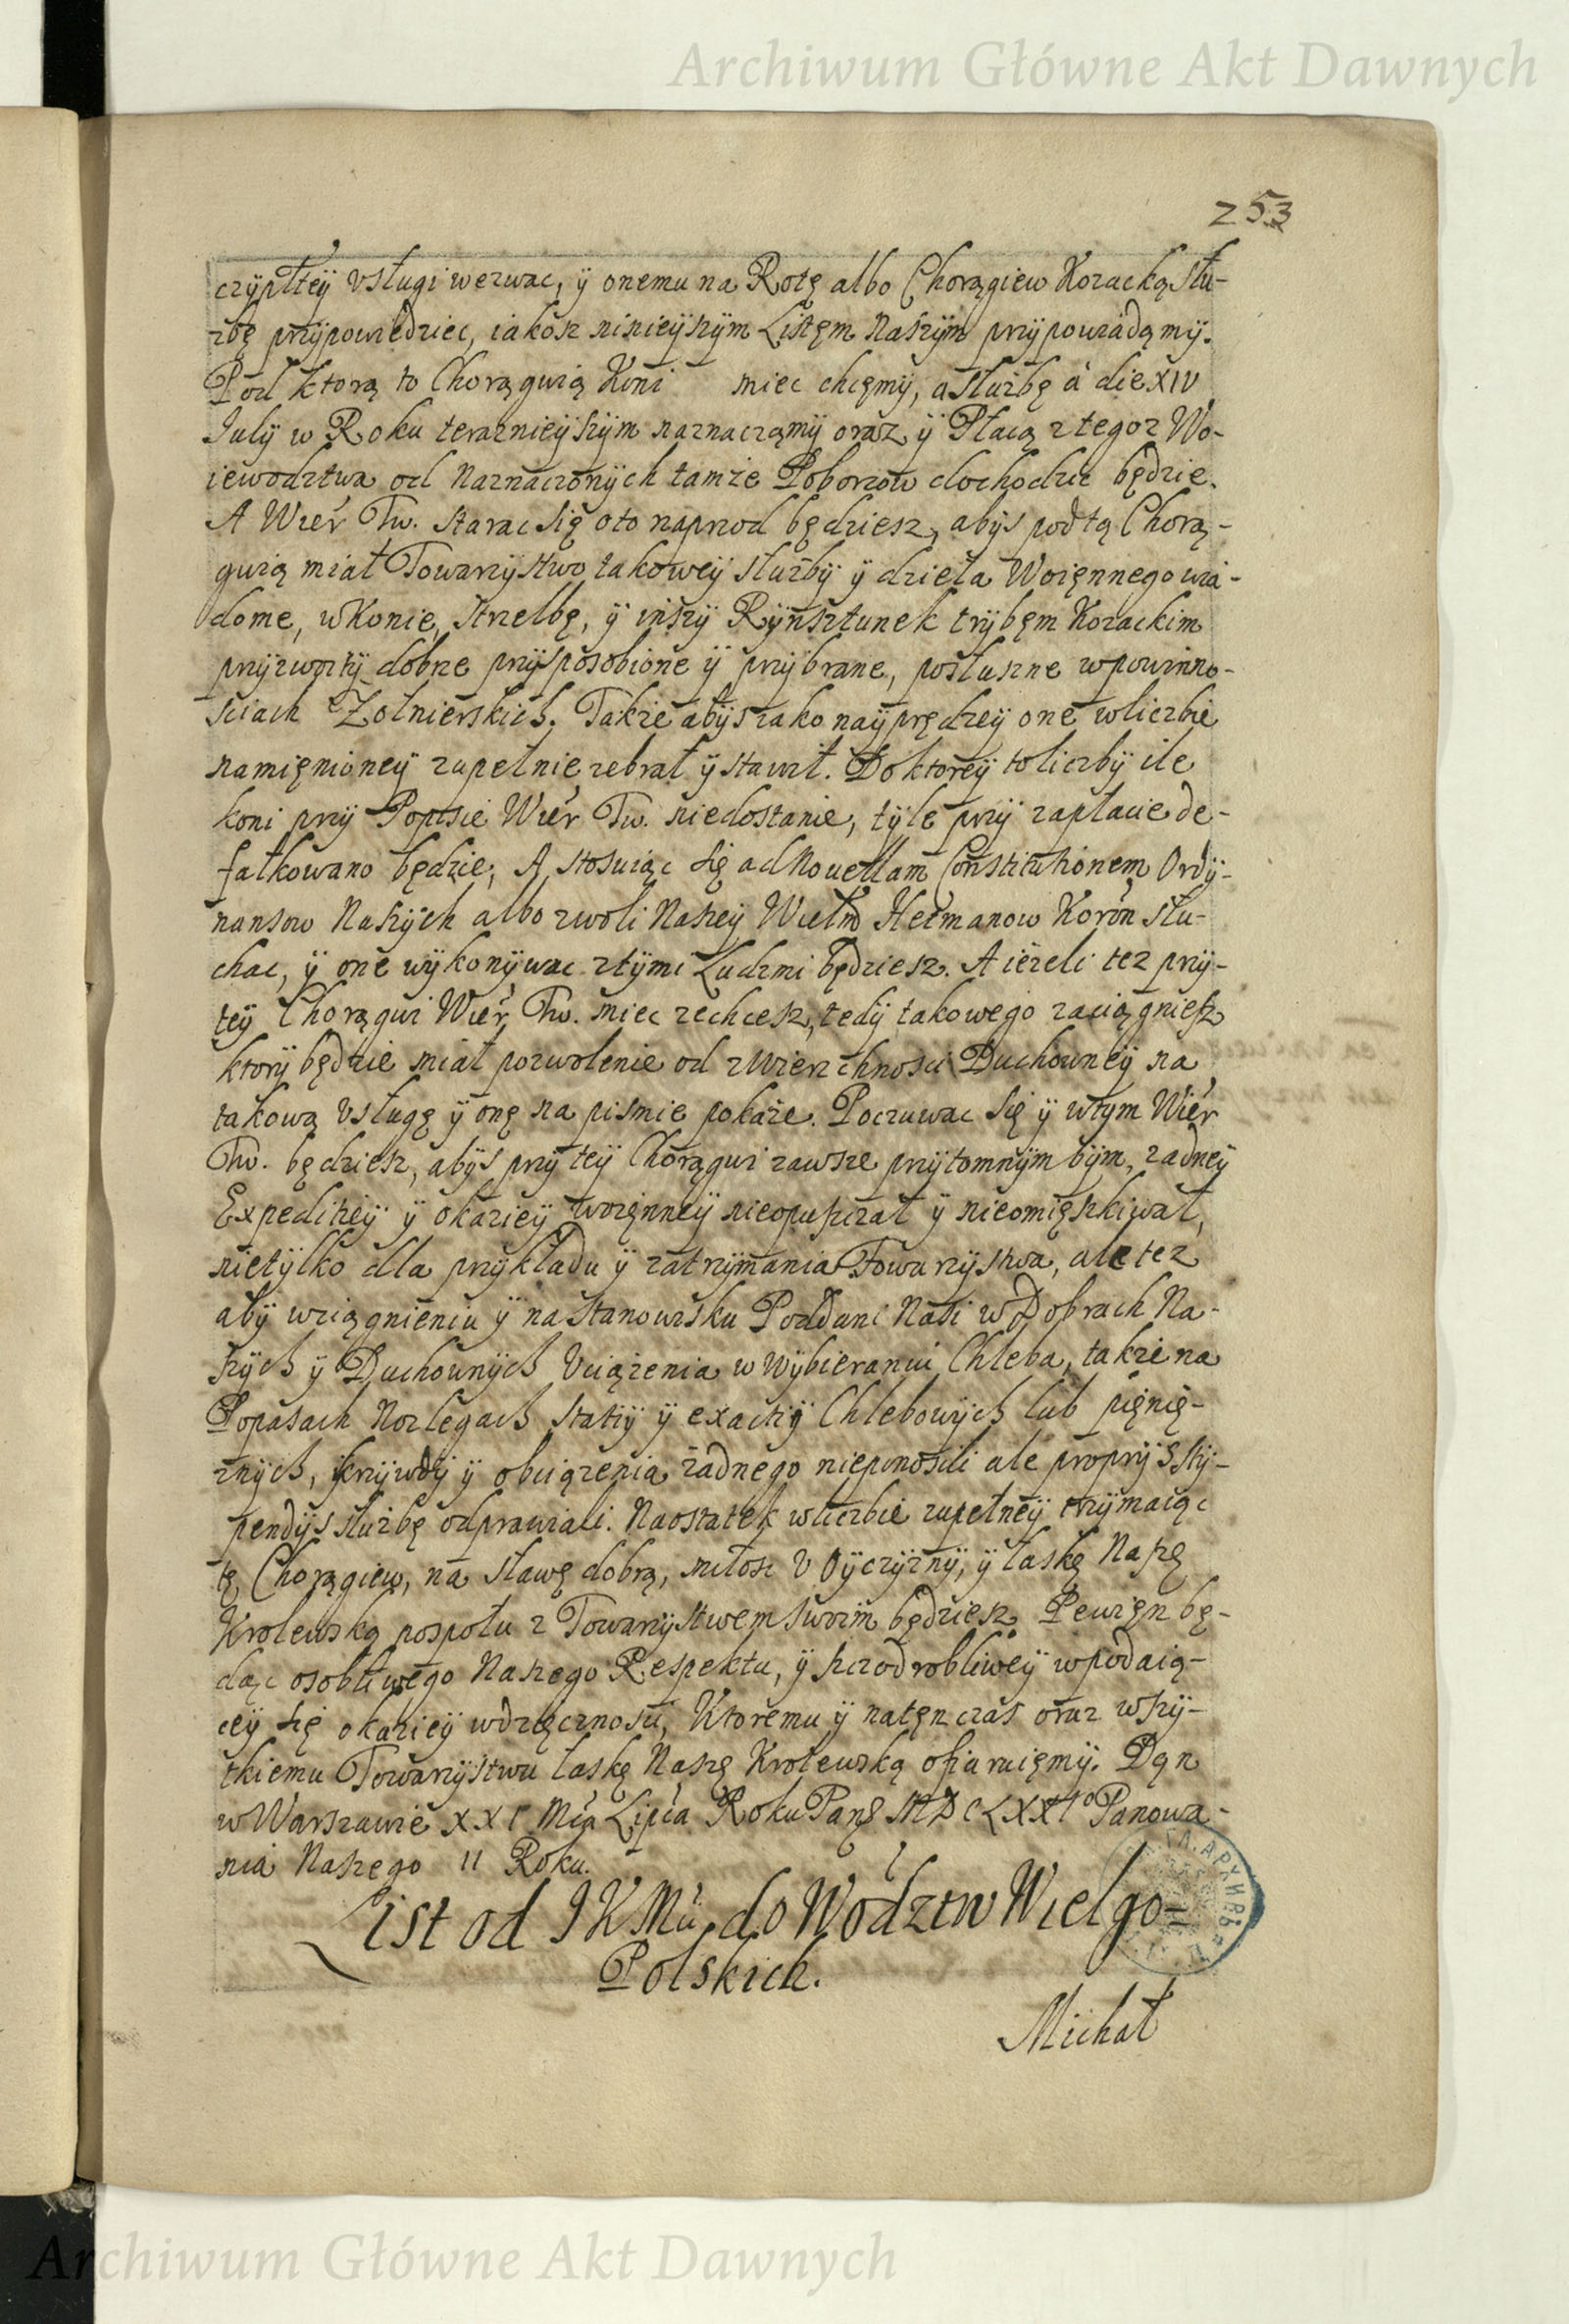 Archiwum Główne Akt Dawnych
253
czÿpltteÿ vsługi wezwac, ÿ onemu na Rotę albo Chorągiew Kozacką słu-
zbę przÿpowiedziec, iakosz ninieÿszÿm Listęm Naszÿm przÿpowiadamÿ.
Pod ktorą to Chorągwią Koni miec chcęmÿ, a Służbę a die XIV
Julÿ w Roku teraznieÿszÿm naznaczamÿ oraz ÿ Płacą z tegoz Wo-
iewodztwa od Naznaczonÿch tamże Poborzow dochodzic będzie.
A Wier Tw. starac się oto naprzod będziesz, abÿs pod tą Chorą-
gwią miał Towarzÿstwo takoweÿ służbÿ ÿ dzieła Woięnnego wia-
dome, w Konie, Strzelbę, ÿ inszÿ Rÿnsztunek trÿbęm Kozackim
przÿzwoitÿ dobrze przÿsposobione ÿ przÿbrane, posłuszne w powinno-
sciach Żołnierskich. Takze abÿs iako naÿprędzeÿ one w liczbie
namięnioneÿ zupełnie zebrał ÿ stawił. Do ktoreÿ to liczbÿ ile
koni przÿ Popisie Wier Tw. niedostanie, tÿle przÿ zapłacie de-
falkowano będzie; A stosuiąc się ad Nouellam Constitutionem Ordÿ-
nansow Naszÿch albo z woli Naszeÿ Wielm Hetmanow Koron słu-
chac, ÿ one wÿkonÿwac z tÿmi Ludzmi będziesz. A iezeli tez przÿ-
teÿ Chorągwi Wier Tw. miec zechcesz, tedÿ takowego zaciągniesz
ktorÿ będzie miał pozwolenie od zwierzchnosci Duchowneÿ na
takową vsługę ÿ onę na pismie pokaże. Poczuwac się ÿ w tym Wier
Tw. będziesz, abÿs przÿ teÿ Chorągwi zawsze przÿtomnÿm bÿm, zadneÿ
Expeditieÿ ÿ okazieÿ woięnneÿ nieopuszczał ÿ nieomięszkiwał,
nietÿlko dla przÿkładu ÿ zatrzÿmania Towarzÿstwa, ale tez
abÿ w ciągnieniu ÿ na stanowisku Poddani Nasi w Dobrach Na-
szÿch ÿ Duchownÿch Vciążenia w Wÿbieraniu Chleba, takze na
Popasach Noclegach statiÿ ÿ exactiÿ Chlebowÿch lub pięnię-
znÿch, krzÿwdÿ ÿ obciązenia żadnego nieponosili ale proprÿs sty-
pendÿs służbę odprawiali. Naostatek w liczbie zupełneÿ trzÿmaiąc
tę Chorągiew, na sławę dobrą, miłosc v Oÿczÿznÿ, ÿ łaskę Naszę
Krolewską pospołu z Towarzÿstwem swoim będziesz. Pewięn bę-
dąc osobliwego Naszego Respektu, ÿ szczodrobliweÿ w podaią-
ceÿ się okazieÿ wdzięcznosci, Ktoremu ÿ natęn czas oraz wszÿ-
tkiemu Towarzÿstwu łaskę Naszę Krolewską ofiaruięmÿ. Dan
w Warszawie XXI Mca Lipca Roku Pans MDCLXXIo Panowa-
nia Naszego II Roku.
List od JKMci do Wodztw Wielgo-
Polskich.
Michał
Archiwum Główne Akt Dawnych